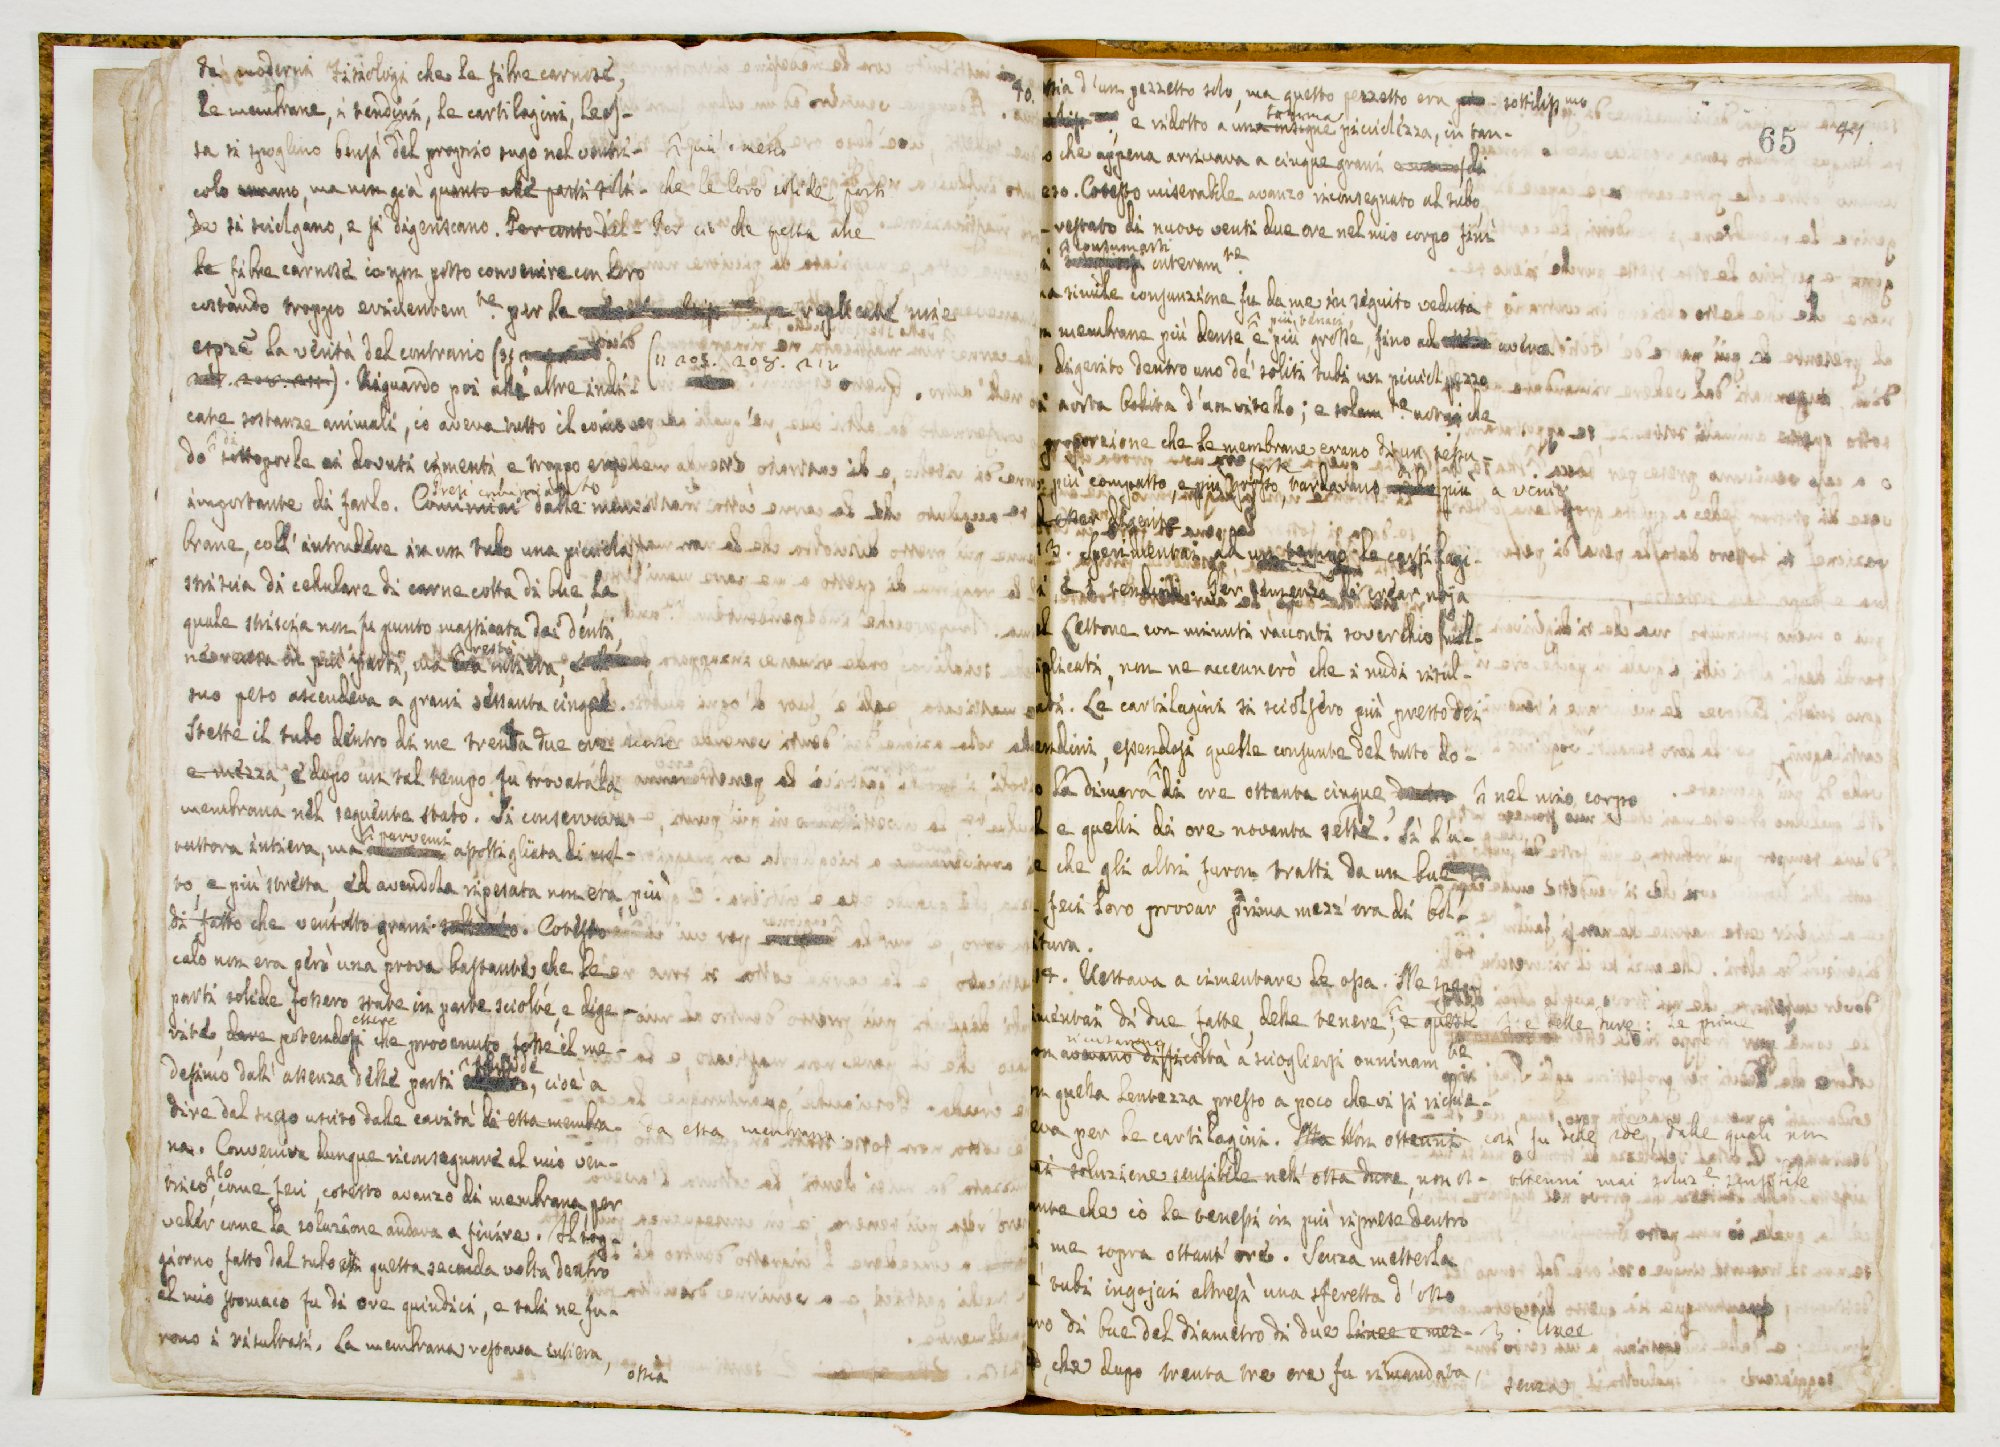 de' moderni Fisiologi che le fibre carnose,
le membrane, i tendini, le cartilagini, le os-
sa si spoglino bensì del proprio sugo nel ventri-
colo umano, ma non già quanto alle parti soli-
de si sciolgano, e si digeriscano. Per conto del-
le fibre carnose io non posso convenire con loro
costando troppo evidentem te per la replicate mie
espze la verità del contrario
208. 211). Riguardo poi alle altre indi-
cate sostanze animali, io aveva tutto il comodo
di sottoporle ai dovuti cimenti e troppo era
importante di farlo. Cominciai dalle mem-
brane, coll' intrudere in un tubo una picciola
striscia di cellulare di carne cotta di bue la
quale striscia non fu punto masticata dai denti,
nè resa in più parti, ma era intiera, e
suo peso ascendeva a grani sessanta cinque.
Stette il tubo dentro di me trenta due ore scarse
e mezza, e dopo un tal tempo fu trovata la
membrana nel seguente stato. Si conservava
tuttora intiera, ma assottigliata di mol-
to, e più stretta, ed avendola ripesata non era più
di fatto che ventotto grani soltanto. Cotesto
calo non era però una prova bastante, che le
parti solide fossero state in parte sciolte, e dige-
rite, dove potendosi essere che provenuto fosse il me-
desimo dall' assenza delle parti fluide, cioè a
dire dal sugo uscito dalle cavità di essa membra-
na. Conveniva dunque riconsegnare al mio ven-
tricolo, come feci, cotesto avanzo di membrana per
veder come la soluzione andava a finire. Il sog-
giorno fatto dal tubo in questa seconda volta dentro
al mio stomaco fu di ore quindici, e tali ne fu-
rono i risultati. La membrana restava intiera,
ossia
più mesto
che le loro solide parti
Per ciò che spetta alle
(11 205. 208. 211.
da essa membrana
40.
ossia d'un pezzetto solo, ma questo pezzetto era sottiliss mo
e ridotto a una insigne picciolezza, in tan-
o che appena arrivava a cinque grani
peso. Cotesto miserabile avanzo riconsegnato al tubo
restato di nuovo venti due ore nel mio corpo finì
consumarsi interam te.
na simile consunzione fu da me in seguito veduta
n membrane più dense e più grosse, fino ad avere
digerito dentro uno de' soliti tubi un picciol pezzo
aorta bollita d'un vitello; e solam te notai che
proporzione che le membrane erano di un tessu-
più compatto, e più grosso, tardavano più a venir
ad esser digerite.
13. Sperimentai ad un tempo le cartilagi-
i e i tendini. Per temenza di crear noja
al Lettore con minuti racconti soverchio mol-
tiplicati, non ne accennerò che i nudi risul-
tati. Le cartilagini si sciolsero più presto dei
tendini, essendosi quelle consunte del tutto do-
o la dimora di ore ottanta cinque nel mio corpo
e quelli di ore novanta sette. Sì l'u-
e che gli altri furon tratti da un bue
feci loro provar prima mezz' ora di bol-
litura.
14. Restava a cimentare le ossa. Ne speri-
mentai di due fatte, delle tenere, e delle dure: le prime
non avevano difficoltà a sciogliersi onninam te
con quella lentezza presso a poco che vi si richie-
deva per le cartilagini. Non ottenni così fu delle ide, dalle quali non
mai soluzione sensibile nell' ossa dure, non ot- ottenni mai soluz e sensibile
stante che io le tenessi in più riprese dentro
di me sopra ottant' ore. Senza metterla
tubi ingojai altresì una sferetta d' osso
duro di bue del diametro di due linee e mez- 3. linee
za, che dopo trenta tre ore fu rimandata,
senza
65
41.